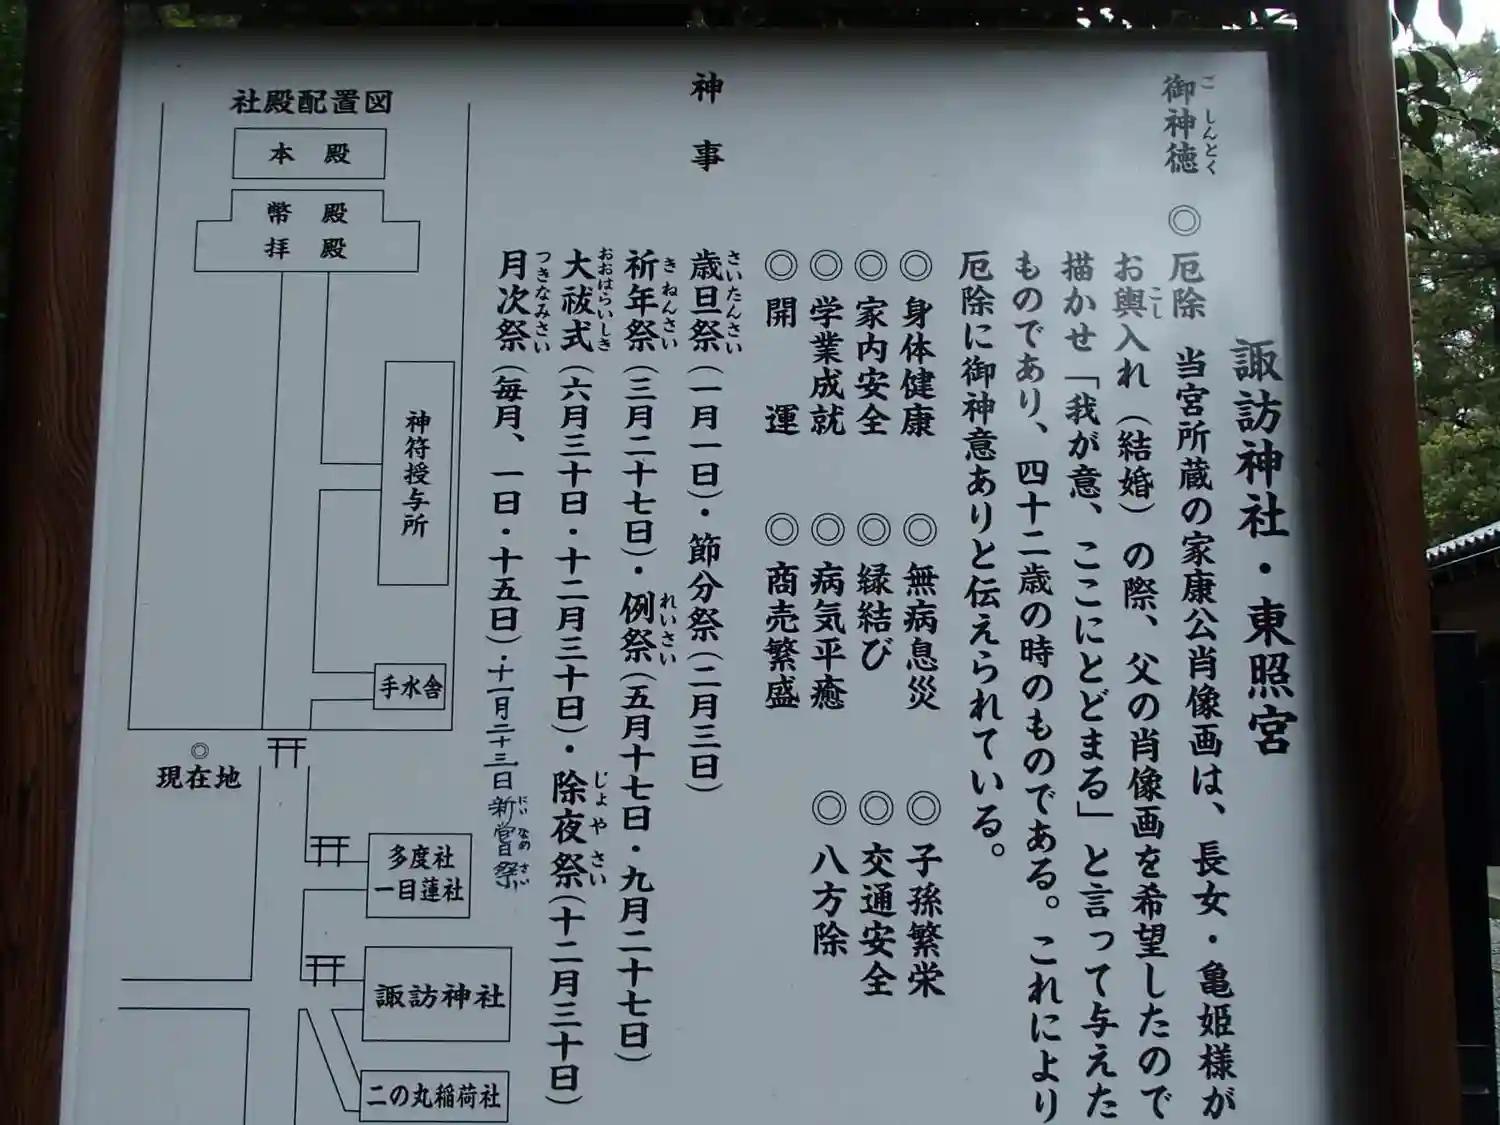 諏訪神社・東照宮
御神徳
ごしんとく
◎厄除 当宮所蔵の家康公肖像画は、長女・亀姫様が
お輿入れ（結婚）の際、父の肖像画を希望したので
こし
描かせ「我が意、ここにとどまる」と言って与えた
ものであり、四十二歳の時のものである。これにより
厄除に御神意ありと伝えられている。
◎身体健康 ◎無病息災 ◎子孫繁栄
◎家内安全 ◎縁結び ◎交通安全
◎学業成就 ◎病気平癒 ◎八方除
◎開運 ◎商売繁盛
神事
歳旦祭（一月一日）・節分祭（二月三日）
さいたんさい
祈年祭（三月二十七日）・例祭（五月十七日・九月二十七日）
きねんさい れいさい
大祓式（六月三十日・十二月三十日）・除夜祭（十二月三十日）
おおはらいしき じょやさい
月次祭（毎月、一日・十五日）・十一月二十三日 新嘗祭
つきなみさい にいなめさい
社殿配置図
本殿
幣殿
拝殿
神符授与所
手水舎
◎
現在地
多度社
一目蓮社
諏訪神社
二の丸稲荷社